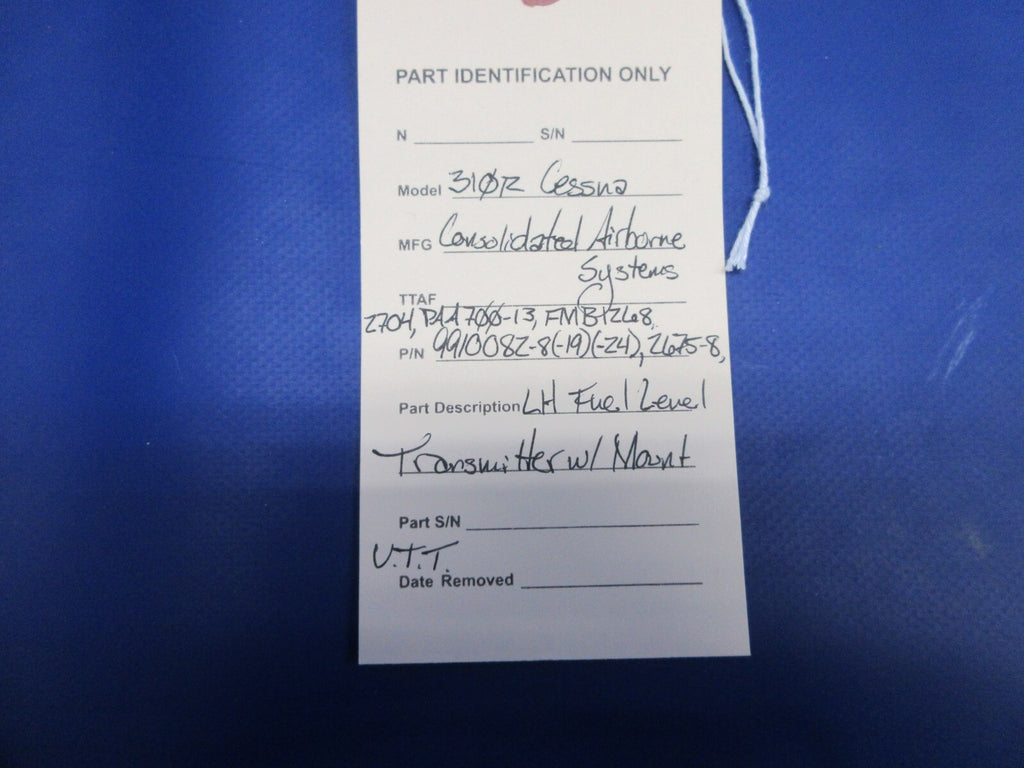 PART IDENTIFICATION ONLY
N S/N
Model 310R Cessna
MFG Consolidated Airborne
Systems
TTAF
2704, PAA700-13, FMB1268,
P/N 9910082-8(-19)(-24), 2675-8,
Part Description LH Fuel Level
Transmitter w/ Mount
Part S/N
U.T.T.
Date Removed